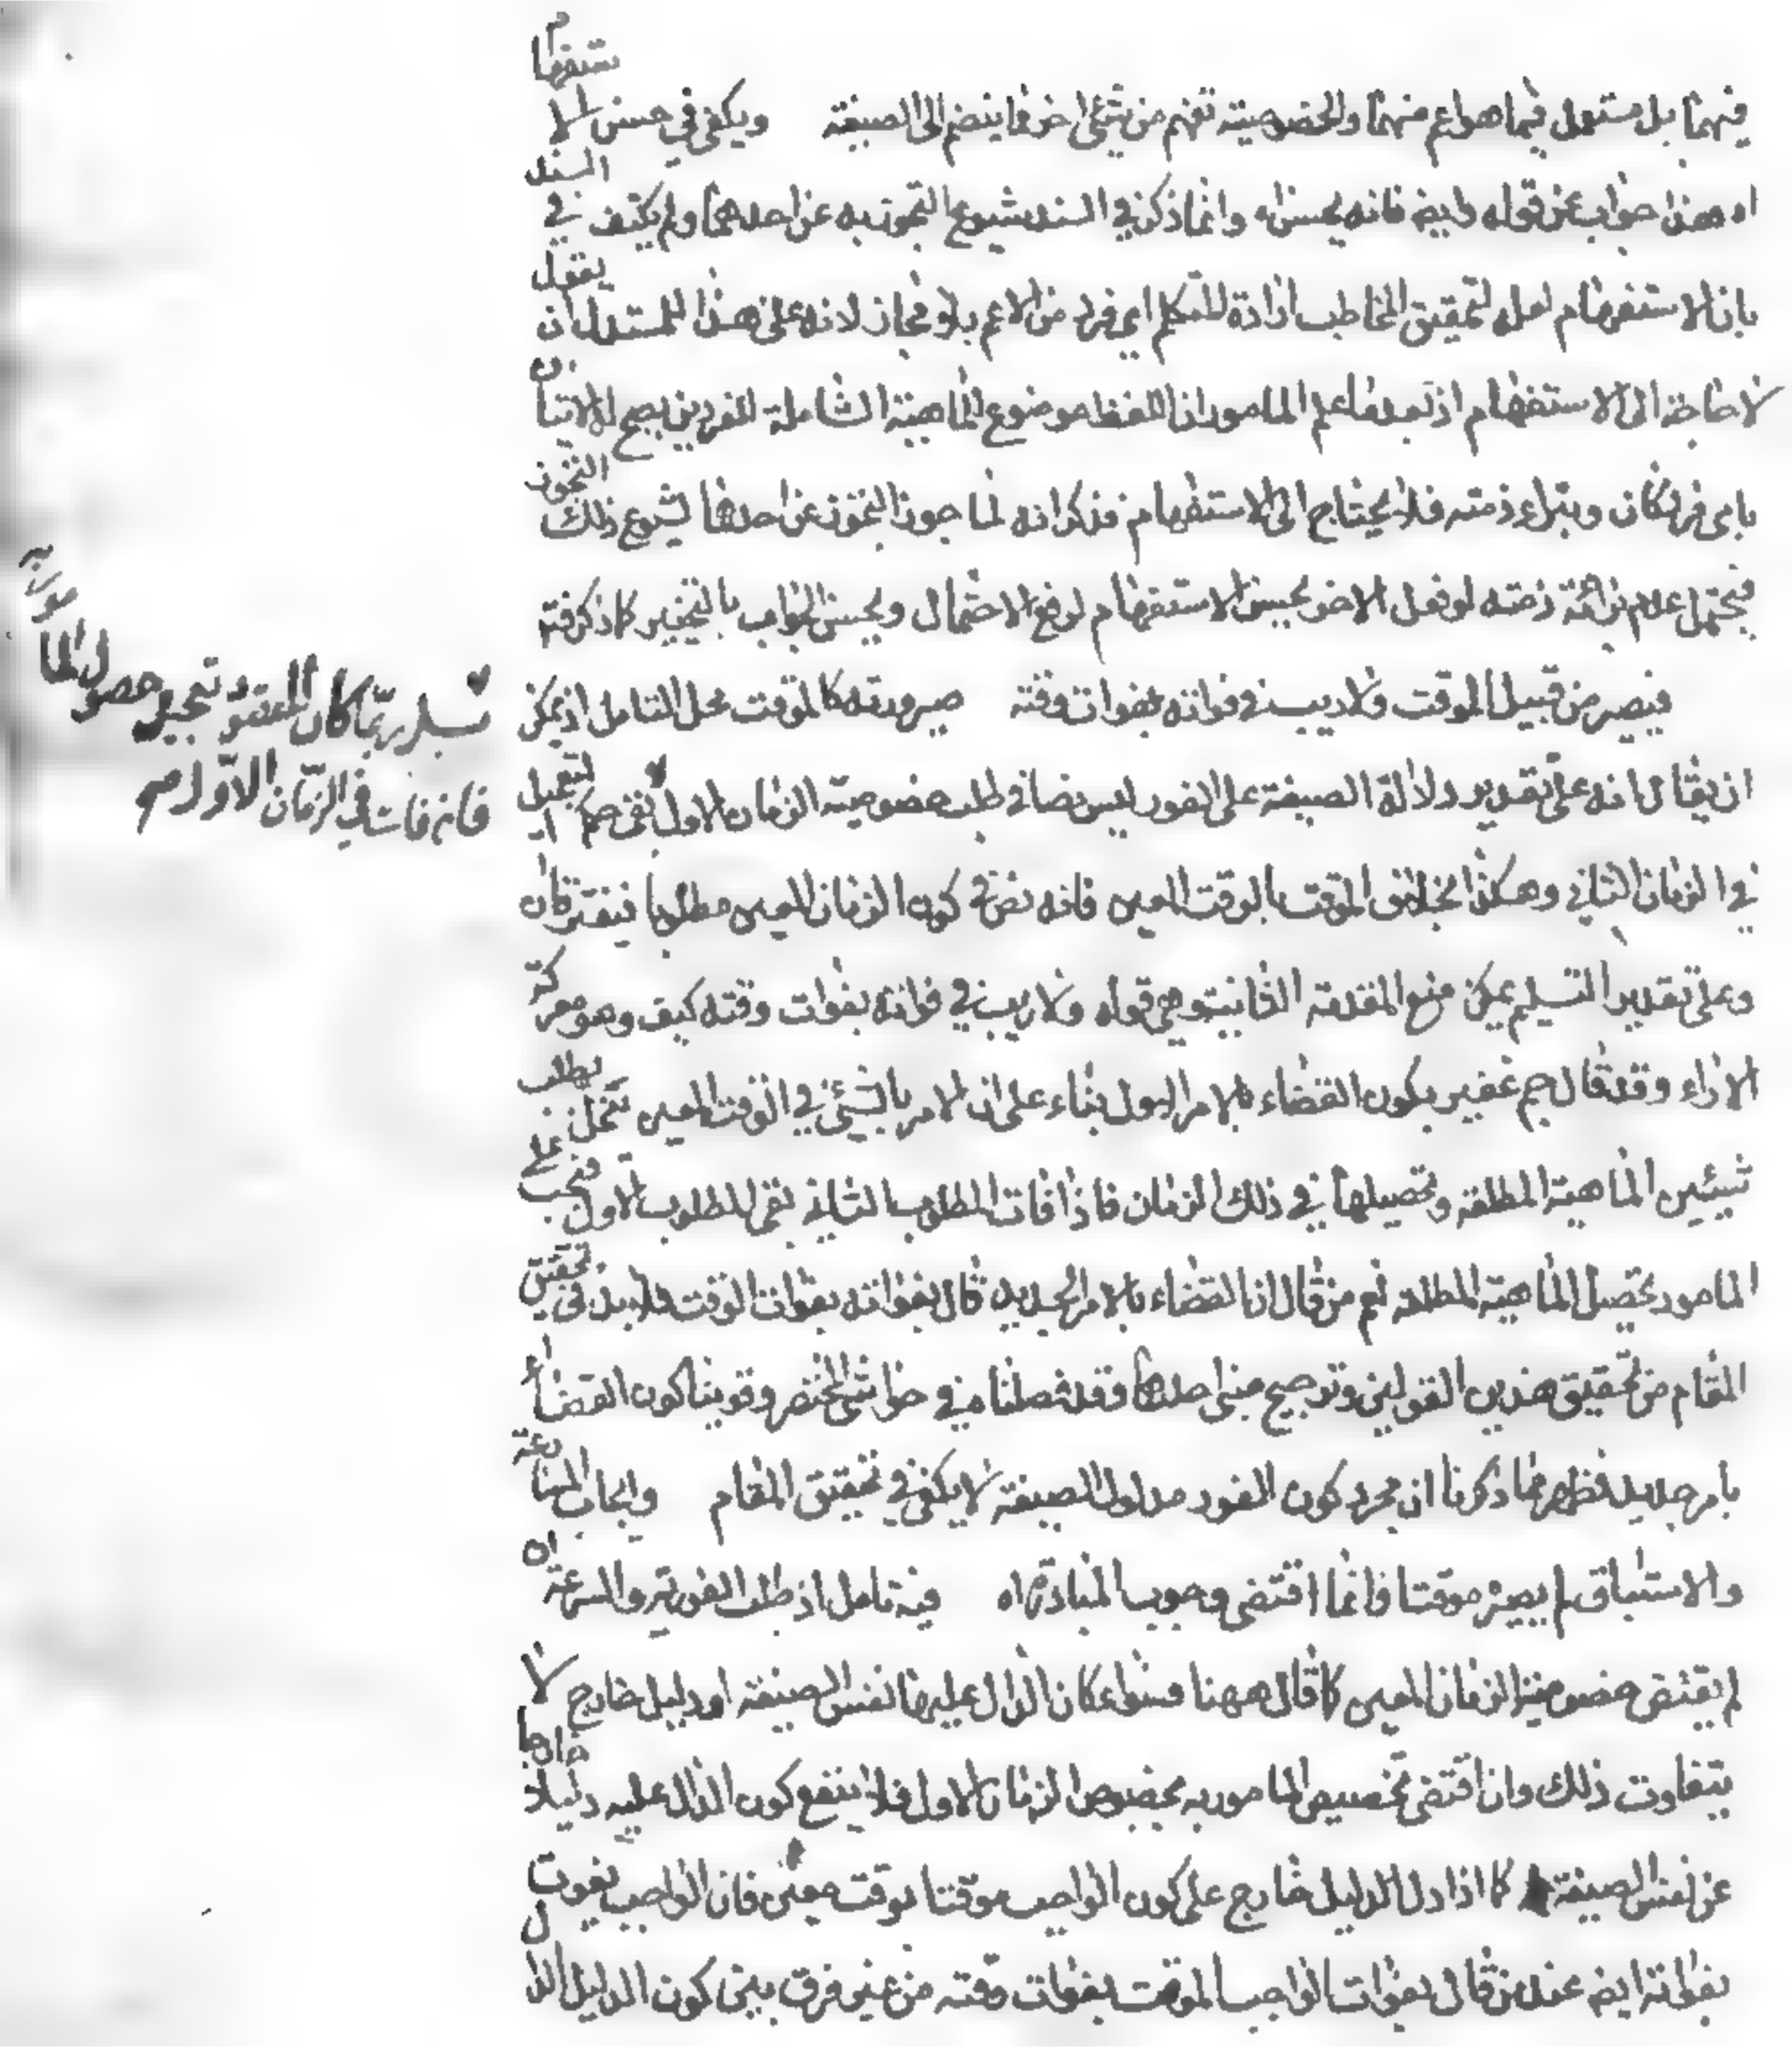 فيهما بل مستعمل فيما هو اعم منهما والخصوصية تفهم من شئ اخر مما ينضم الى الصيغة ويكفى في حسن الاستفهام
اه هذا جواب عن قوله وايضا فانه يحسن اه وانما ذكر في السند شيوع التجوز به عن احدهما ولم يكتف في السند
بان الاستفهام لعله لتحقيق المخاطب ارادة المتكلم اي فرد من الاعم بلا مجاز لانه على هذا للمستدل ان يقول
لا حاجة الى الاستفهام اذ بعد ما علم المامور ان اللفظ موضوع للماهية الشاملة للفردين يصح له الاتيان
باى فرد كان ويبراء ذمته فلا يحتاج الى الاستفهام فذكر انه لما جوز التجوز عن احدهما لشيوع ذلك التجوز
فيحتمل عدم برائة ذمته لو فعل الاخر يحسن الاستفهام لرفع الاحتمال ويحسن الجواب بالتخيير كما ذكرفته
فيصير من قبيل الموقت ولا ريب في فواته بفوات وقته صيرورته كالموقت محل التامل اذ يمكن
ان يقال انه على تقدير دلالة الصيغة على الفور ليس نصا في طلب خصوصية الزمان الاول لتعجيل
في الزمان الثاني وهكذا بخلاف الموقت بالوقت المعين فانه نص في كون الزمان المعين مطلوبا فيفترقان
وعلى تقدير التسليم يمكن منع المقدمة الثانية وهي قوله ولا ريب في فواته بفوات وقته كيف وهو معركة
الاراء وقد قال جم غفير بكون القضاء بالامر الاول بناء على ان الامر بالشئ في الوقت المعين ينحل بطلب
شيئين الماهية المطلقة وتحصيلها في ذلك الزمان فاذا فات المطلوب الثاني بقى المطلوب الاول فيجب على
المامور تحصيل الماهية المطلقة نعم من قال ان القضاء بالامر الجديد قال بفواته بفوات الوقت فلا بد في تحقيق
المقام من تحقيق هذين القولين وترجيح مبنى احدهما وقد فصلنا في حواشى المختصر وقوينا كون القضاء
بامر جديد فظهر مما ذكرنا ان مجرد كون الفور مدلول الصيغة لا يكفى في تحقيق المقام وايجاب المسارعة
والاستباق لم يصيره موقتا فانما اقتضى وجوب المبادرة اه فيه تامل اذ طلب الفورية والسرعة ان
لم يقتض خصوصية الزمان المعين كما قال ههنا فسواء كان الدال عليها نفس الصيغة او دليل خارج لا
يتفاوت ذلك وان اقتضى تخصيص المامور به بخصوص الزمان الاول فلا ينفع كون الدال عليه دليلا خارجا
عن نفس الصيغة كما اذا دل الدليل خارج على كون الواجب موقتا بوقت معين فان الواجب يفوت
بفواته ايضا عند من قال بفوات الواجب الموقت بفوات وقته من غير فرق بين كون الدليل الدال
بل ربما كان المقصود تعجيل حصول المامور به
فانه فات في الزمان الاول صح